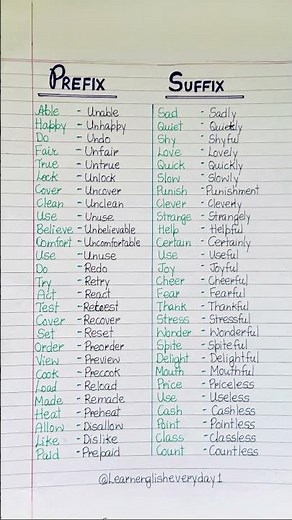 PREFIX SUFFIX
Able - Unable Sad - Sadly
Happy - Unhappy Quiet - Quickly
Do - Undo Shy - Shyful
Fair - Unfair Love - Lovely
True - Untrue Quick - Quickly
Lock - Unlock Slow - Slowly
Cover - Uncover Punish - Punishment
Clean - Unclean Clever - Cleverly
Use - Unuse Strange - Strangely
Believe - Unbelievable Help - Helpful
Comfort - Uncomfortable Certain - Certainly
Use - Unuse Use - Useful
Do - Redo Joy - Joyful
Try - Retry Cheer - Cheerful
Act - React Fear - Fearful
Test - Thank - Thankful
Cover - Recover Stress - Stressful
Set - Reset Wonder - Wonderful
Order - Preorder Spite - Spiteful
View - Preview Delight - Delightful
Cook - Precook Mouth - Mouthful
Load - Reload Price - Priceless
Made - Remade Use - Useless
Heat - Preheat Cash - Cashless
Allow - Disallow Point - Pointless
Like - Dislike Class - Classless
Paid - Prepaid Count - Countless
@Learnenglisheveryday1